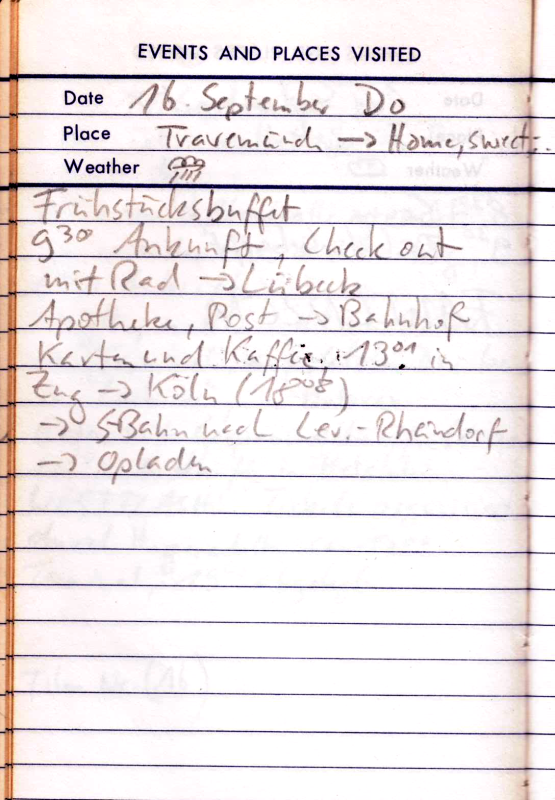 EVENTS AND PLACES VISITED
Date 16. September Do
Place Travemünde → Home, sweet...
Weather
Frühstücksbuffet
9³⁰ Ankunft, Check out
mit Rad → Lübeck
Apotheke, Post → Bahnhof
Karten und Kaffee, 13⁰¹ in
Zug → Köln (18⁰⁸)
→ S-Bahn nach Lev.-Rheindorf
→ Opladen